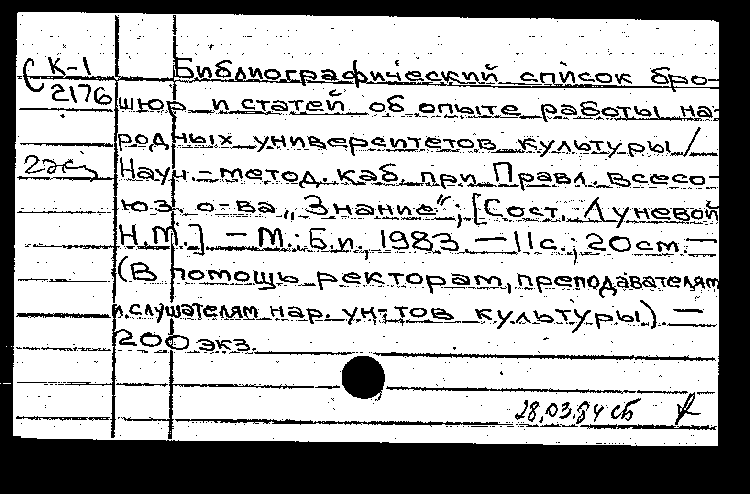 К-1 Библиографический список бро-
2176 шюр и статей об опыте работы на-
родных университетов культуры /
2экз Науч.-метод. каб. при Правл. всесо-
юз. о-ва „Знание“; [Сост. Луневой
Н.М.] — М.: Б.и., 1983. — 11с.; 20см. —
(В помощь ректорам, преподавателям
и слушателям нар. ун-тов культуры) —
200 экз.
28.03.84 сб